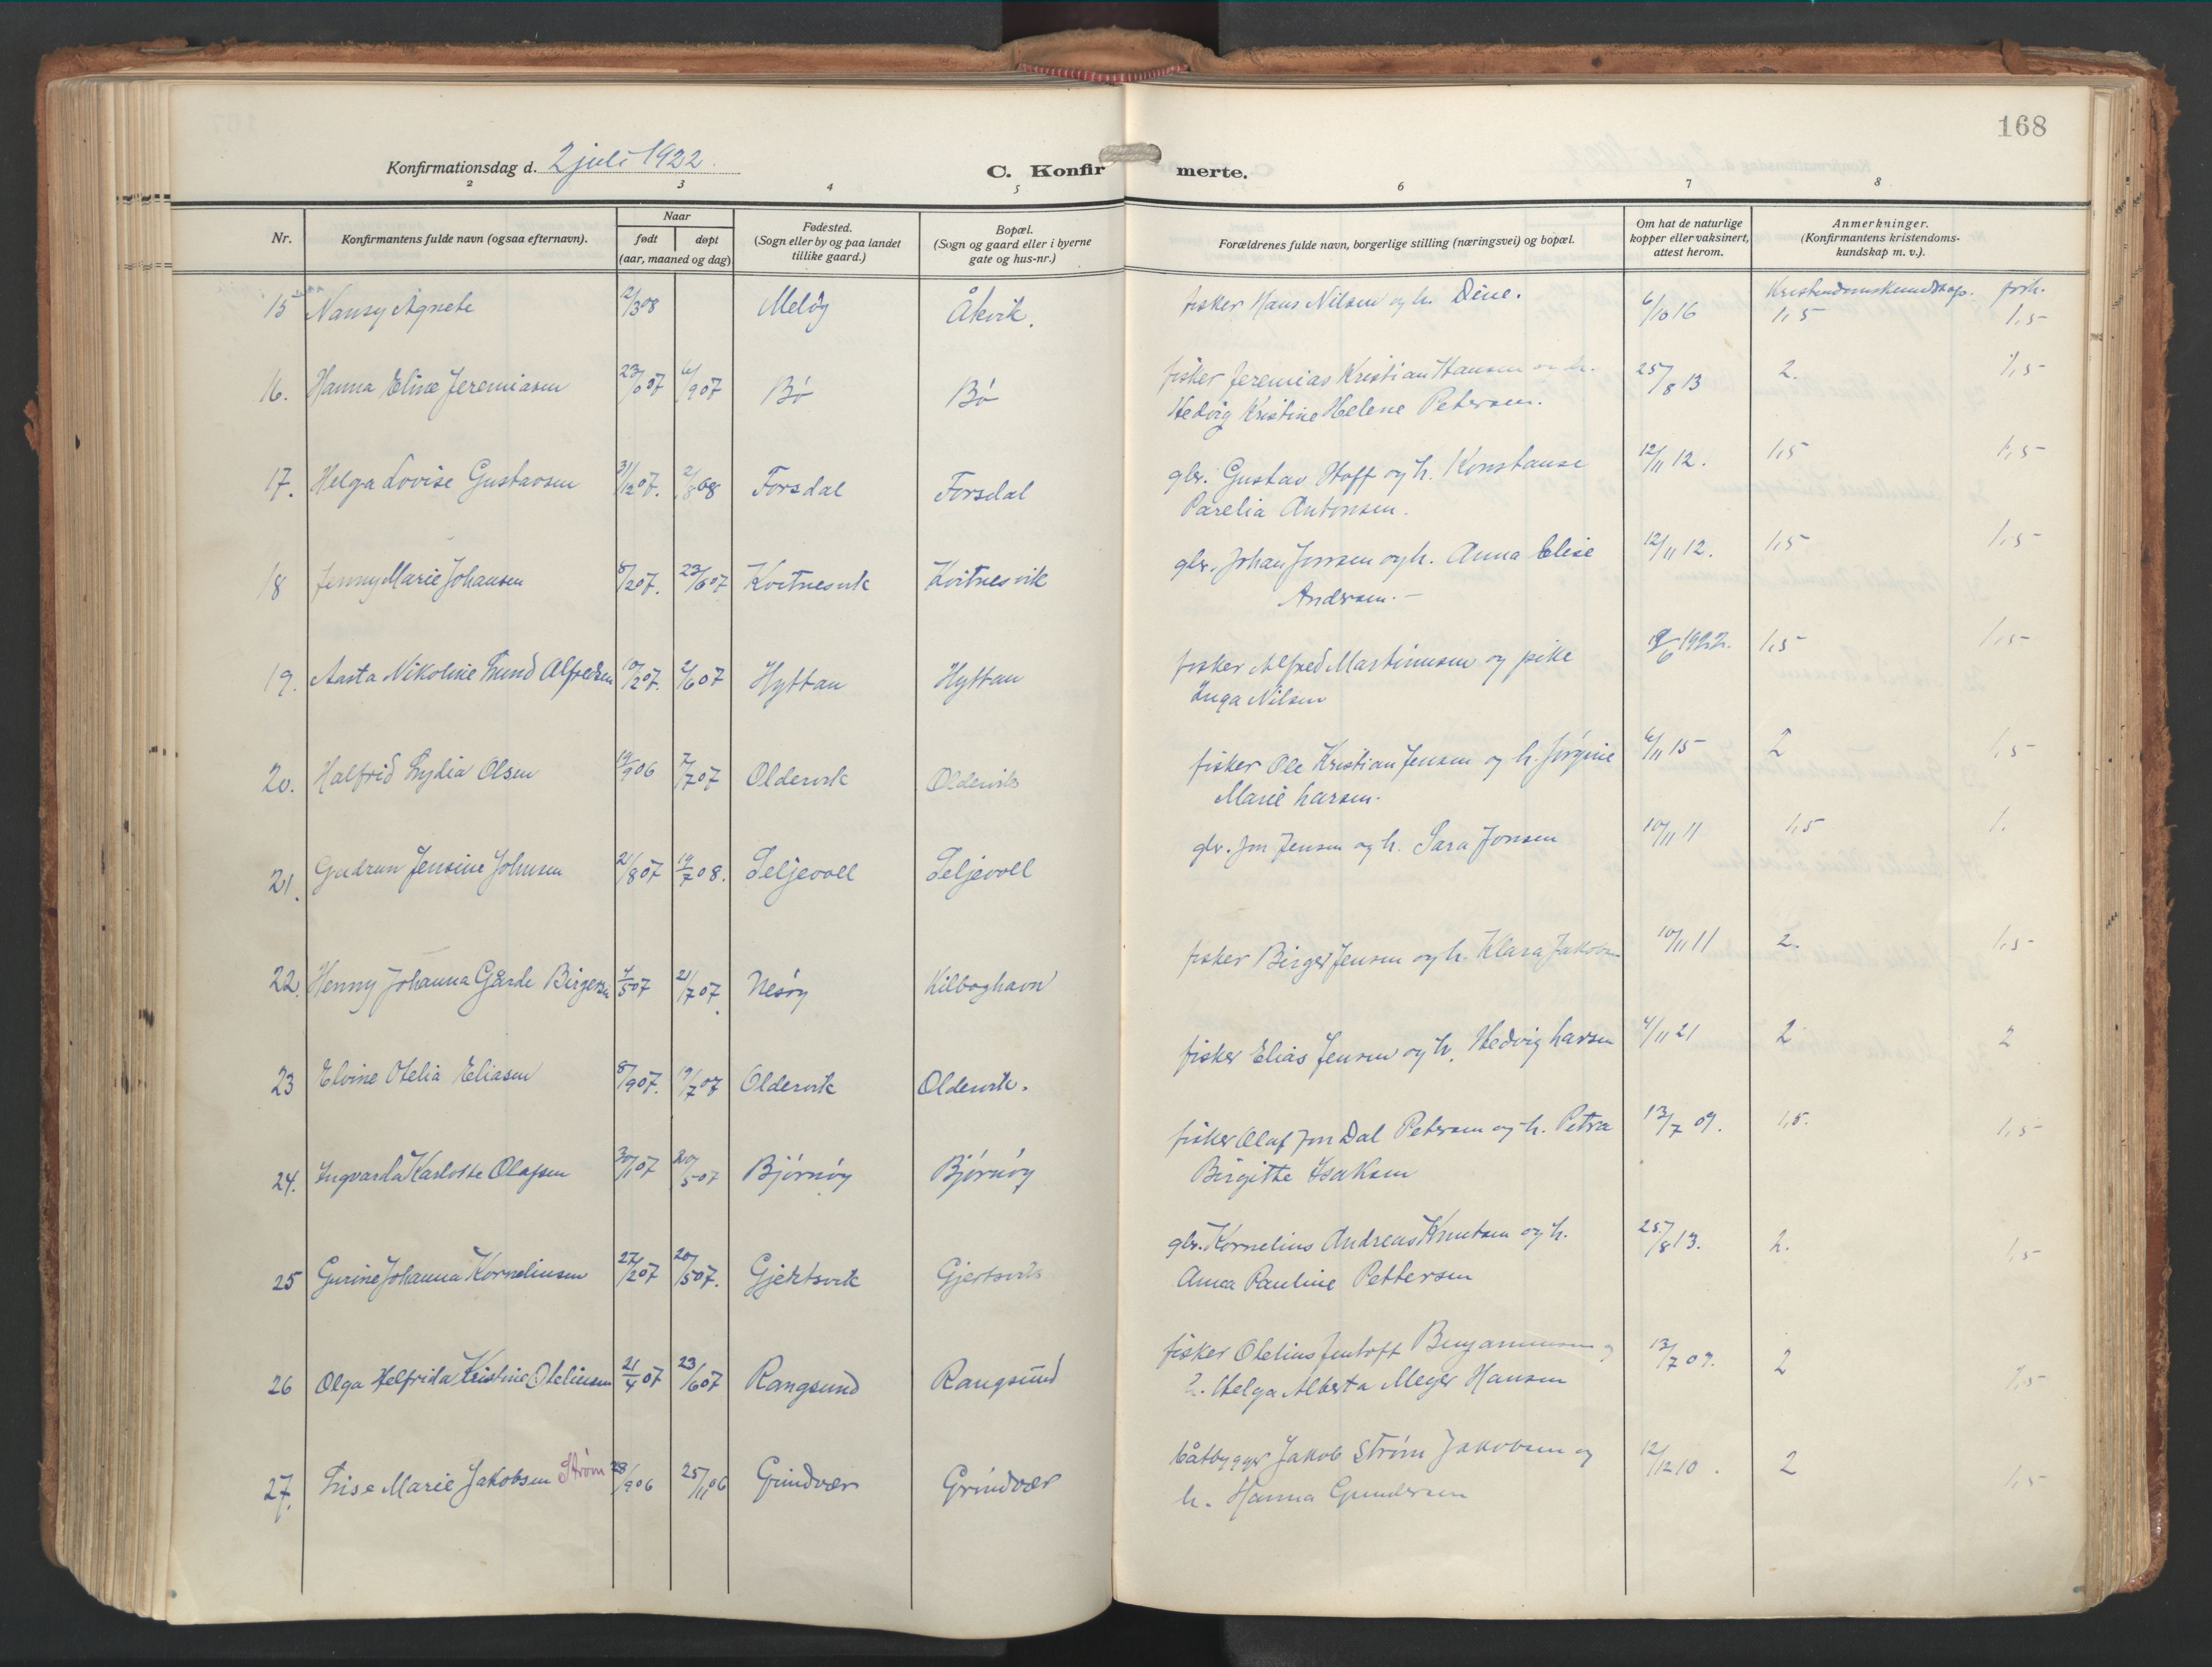 168
Konfirmationsdag d. 2 juli 1922.
C. Konfirmerte.
2 3 4 5 6 7 8
Nr.
Konfirmantens fulde navn (ogsaa efternavn).
Naar
født døpt
(aar, maaned og dag)
Fødested.
(Sogn eller by og paa landet
tillike gaard.)
Bopæl.
(Sogn og gaard eller i byerne
gate og hus-nr.)
Forældrenes fulde navn, borgerlige stilling (næringsvei) og bopæl.
Om hat de naturlige
kopper eller vaksinert,
attest herom.
Anmerkninger.
(Konfirmantens kristendoms-
kundskap m. v.).
Kristendomskundskap. forh.
15 Nansy Agnete 12/3 08 Meløy Åkvik. fisker Hans Nilsen og h. Dine. 6/10 16 1,5 1,5
16. Hanna Eline Jeremiasen 07 6/9 07 Bø Bø fisker Jeremias Kristian Hansen og h. 25/8 13 2. 1,5
Hedvig Kristine Helene Petersen.
17. Helga Lovise Gustavsen 31/12 07. 2/8 08 Forsdal Forsdal gbr. Gustav Hoff og h. Konstanse 12/11 12. 1,5 1,5
Parelia Antonsen.
18 Jenny Marie Johansen 8/2 07. 23/6 07 Kvitnesvik Kvitnesvik gbr. Johan Jonsen og h. Anna Elise 12/11 12. 1,5 1,5
Andersen. -
19. Aasta Nikoline Lund Alfredsen 10/2 07. 2/6 07 Hyttan Hyttan fisker Alfred Martinusen og pike 1922. 1,5 1,5
Inga Nilsen
20. Halfrid Lydia Olsen 19/9 06 7/7 07 Oldervik Oldervik fisker Ole Kristian Jensen og h. Jørgine 6/11 15 2 1,5
Marie Larsen.
21. Gudrun Jensine Johnsen 21/8 07 19/7 08. Seljevoll Seljevoll gbr. Jon Jensen og h. Sara Jonsen 10/11 11 1,5 1.
22. Henny Johanna Gjærde Birgersen 4/5 07 21/7 07. Nesøy Kilboghavn fisker Birger Jensen og h. Klara Jakobsen 10/11 11 2. 1,5
23 Elvine Otelia Eliasen 8/9 07. Oldervik Oldervik. fisker Elias Jensen og h. Hedvig Larsen 4/11 21 2 2
24. Ingvarda Karlotte Olafsen 30/1 07 20/5 07 Bjørnøy Bjørnøy fisker Olaf Jon Dal Petersen og h. Petra 13/7 09. 1,5. 1,5
Birgitte Isaksen
25 Gurine Johanna Korneliusen 27/2 07 20/5 07. Gjertsvik Gjertsvik gbr. Kornelius Andreas Knutsen og h. 25/8 13. 2. 1,5
Anna Pauline Pettersen
26 Olga Helfrida Kristine Oteliusen 21/4 07 23/6 07 Rangsund Rangsund fisker Otelius Jentoft Benjaminsen og 13/7 09. 2 1,5
h. Helga Alberta Meyer Hansen
27. Lise Marie Jakobsen Strøm 28/9 06 25/11 06 Grindvær Grindvær båtbygger Jakob Strøm Jakobsen og 12/12 10. 2 1,5
h. Hanna Gundersen